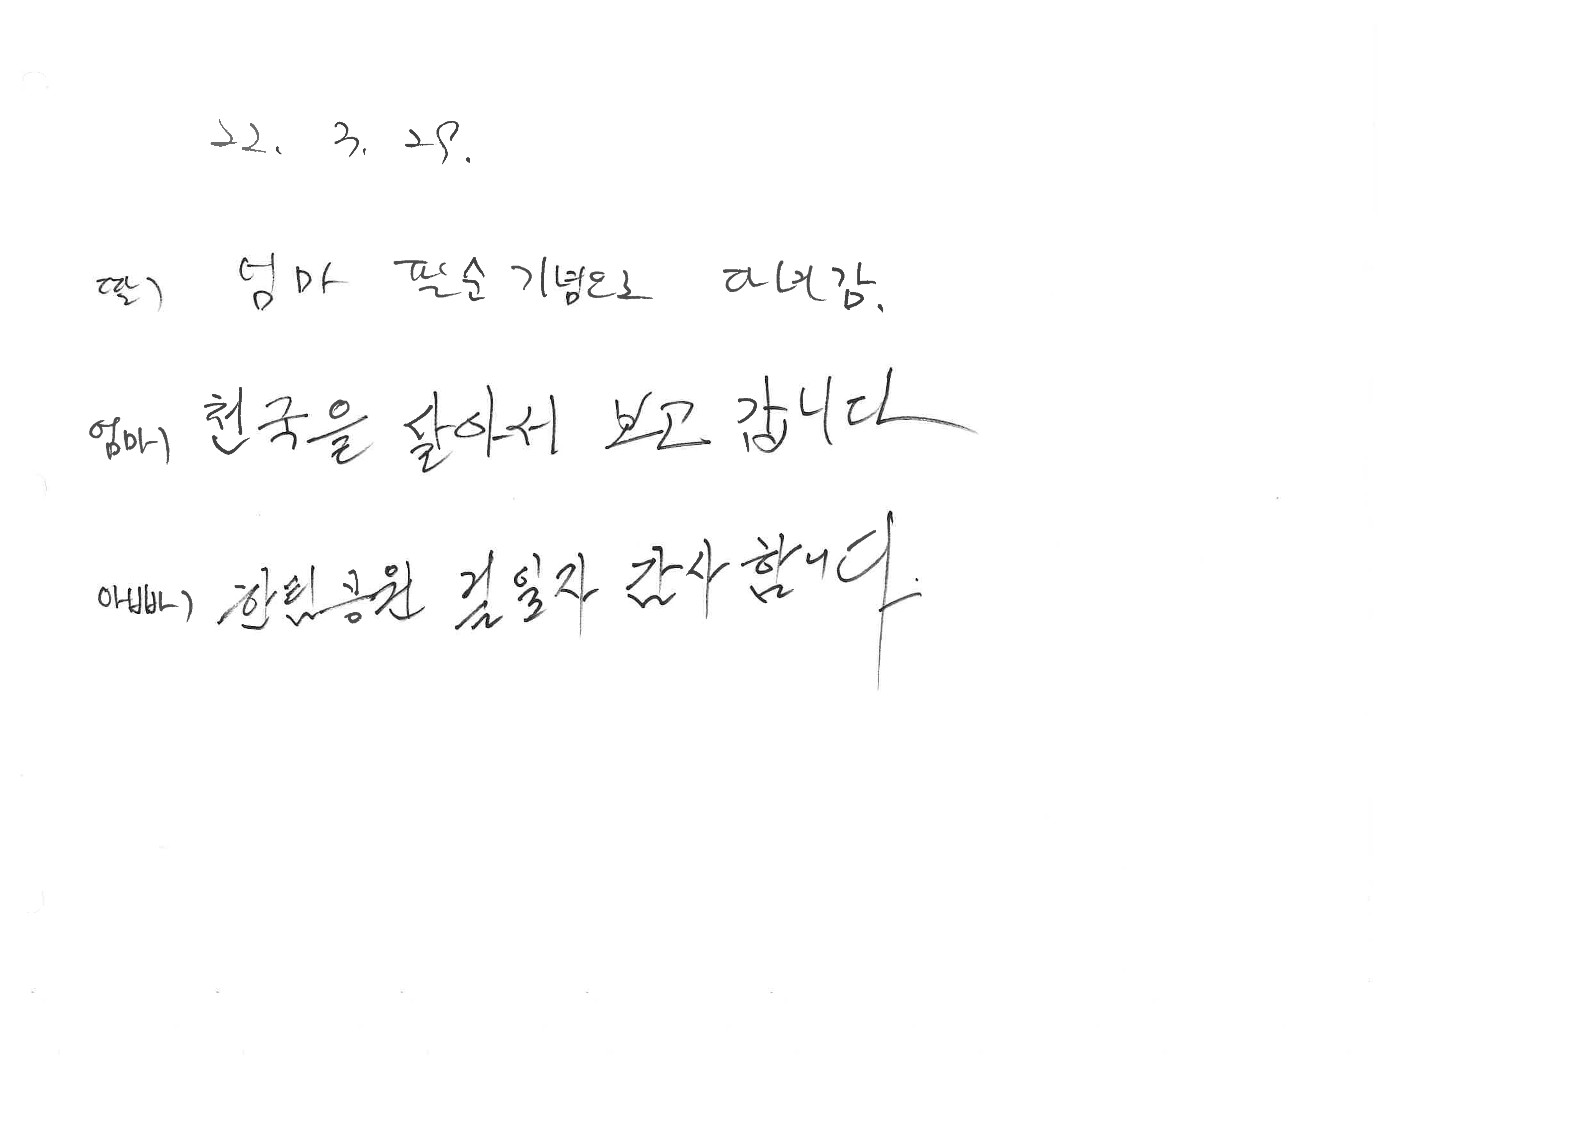 22. 3. 29.
딸) 엄마 필순기념으로 다녀감.
엄마) 천국을 살아서 보고 갑니다
아빠) 한림공원 감사합니다.